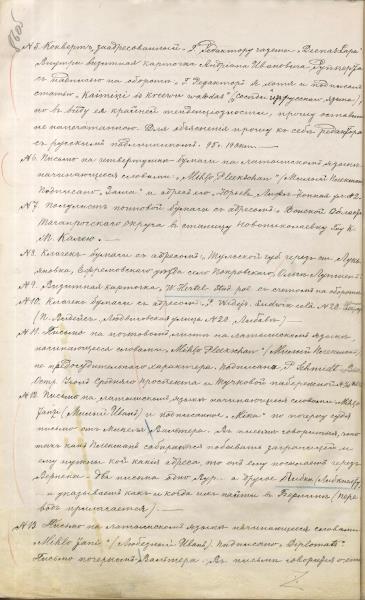 № 5. Конвертъ, заадресованный „Г. Редактору газеты „Деенасъ Лапа".
Внутри визитная карточка Андріана Ивановича Рупперта
съ надписью на оборотѣ „Г. Редакторъ Я хотя и подписалъ
статью „Kaimiņi is kreewu walodas" (сосѣди изъ русскаго языка),
но въ виду ея крайней тенденціозности, прошу оставить
не напечатанною. Для объясненія прошу ко себѣ редактора
съ русскими подлинниками. 95 г.
№ 6. Письмо на четвертушкѣ бумаги на латышскомъ языкѣ
начинающееся словами „Mihļo Pleekschan" (Милый Плекшанъ
Подписано „Заша" и адресъ его Юрьевъ Лифл.
№ 7. Полулистъ почтовой бумаги съ адресомъ: Донской Области
Таганрогскаго округа въ станицу Новониколаевку
М. Калею. —
№ 8. Клочекъ бумаги съ адресомъ: Тульской губ. черезъ ст. Лукь-
яновка, Ефремовскаго уѣзда село Покровское, Ольгѣ
№ 9. Визитная карточка, W. Hertel. Stud. pol. съ счетомъ на оборотѣ
№ 10. Клочекъ бумаги съ адресомъ: P. Widejs. Ludwik celā №20
(П. Видейсъ Людвиговская улица №20 Либава)
№ 11. Письмо на почтовомъ листѣ на латышскомъ языкѣ,
начинающееся словами „Mihļo Pleekschan" (Милый Плекшанъ)
не предосудительнаго характера. Подписано „P. Schmidt.
Остр. Уголъ Средняго проспекта и Тучковой набережной
№ 12. Письмо на латышскомъ языкѣ начинающееся словами
Jani (Милый Иванъ) и подписанное „Mika" по почерку судя
письмо отъ Микеля Вальтера. Въ письмѣ говорится, что
такъ какъ Плекшанъ собирается побывать заграницей и
ему нужны кой какіе адреса, то онъ ему посылаетъ черезъ
два письма одно Лур. а другое
и указываетъ какъ и когда ихъ найти въ Берлинѣ (пере-
водъ прилагается) —
№ 13. Письмо на латышскомъ языкѣ начинающееся словами
Mihļo Jani" (Любезный Иванъ). Подписано „Diplomats"
Письмо почеркомъ Вальтера. Въ письмѣ говорится